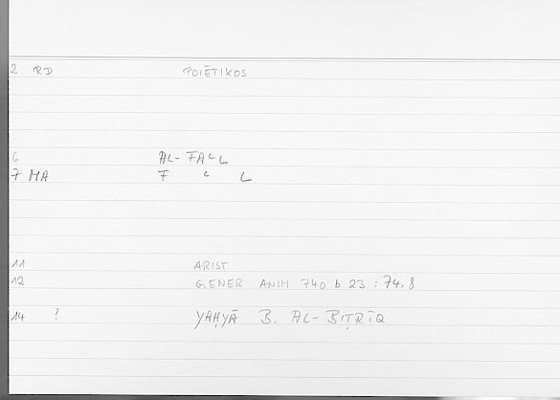 2 RD POIĒTIKOS
6 AL-FAᶜL
7 MA F ᶜ L
11 ARIST
12 GENER ANIM 740 b 23 : 74.8
14 ? YAḤYĀ B. AL-BIṬRĪQ